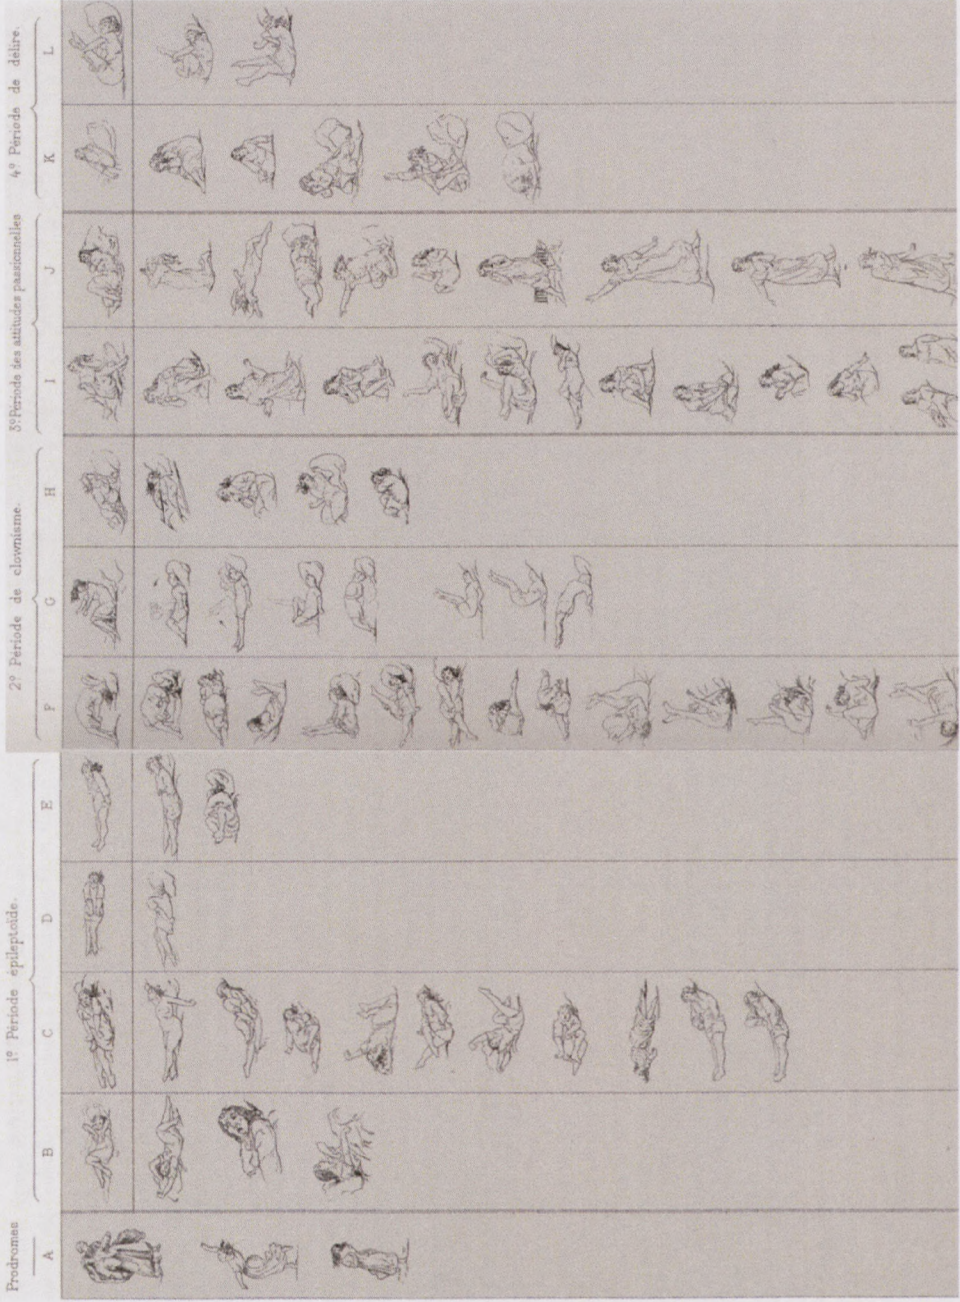 Prodromes
1º Période épileptoïde.
2º Période de clownisme.
3º Période des attitudes passionnelles
4º Période de délire.
A
B
C
D
E
F
G
H
I
J
K
L